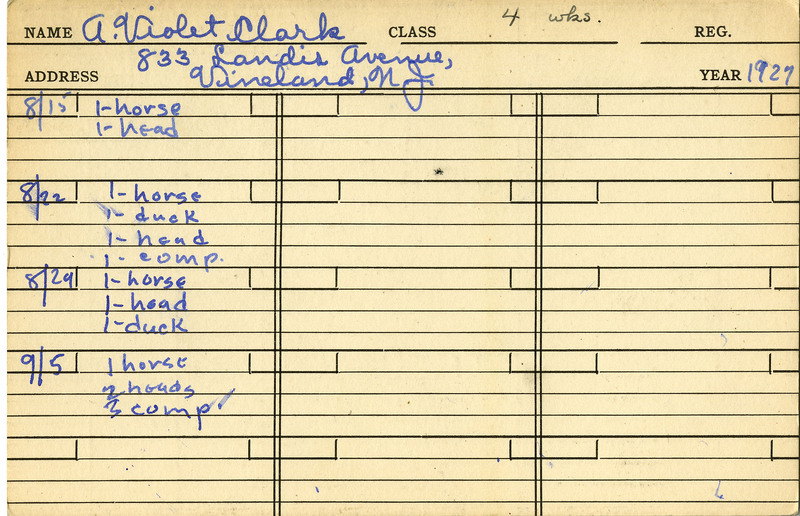 NAME A. Violet Clark CLASS 4 wks. REG.
833 Landis Avenue,
ADDRESS Vineland, N.J. YEAR 1927
8/15 1-horse
1-head
8/22 1-horse
1-duck
1-head
1-comp.
8/29 1-horse
1-head
1-duck
9/5 1 horse
2 heads
3 comp.